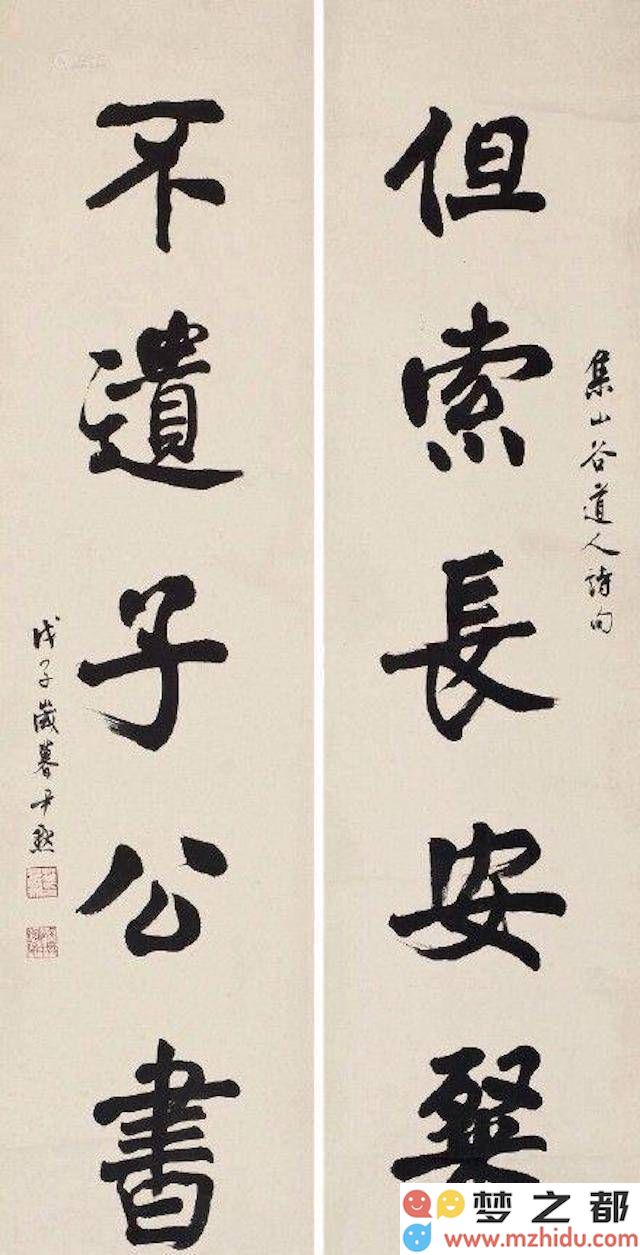 集山谷道人詩句
但索長安粲
不遺子公書
戊子歲暮尹默
梦之都
www.mzhidu.com